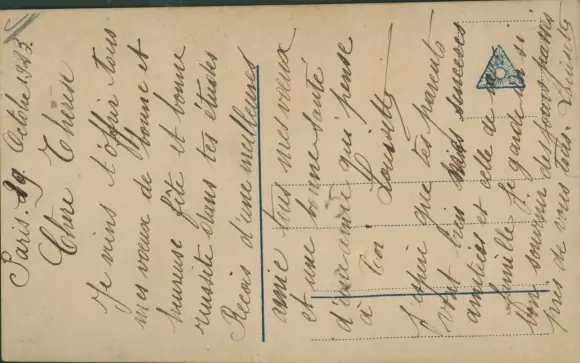 Paris. 19 Octobre 1923
Chère Thérèse
Je viens t'offrir tous
mes vœux de bonne et
heureuse fête et bonne
réussite dans tes études
Reçois d'une meilleures
amie tous mes vœux
et une bonne santé
d'une amie qui pense
à toi Louisette
J'espère que tes parents
vont bien mes sincères
amitiés et celle de ma
famille. Je garde un si
bon souvenir des jours passés
près de vous tous.